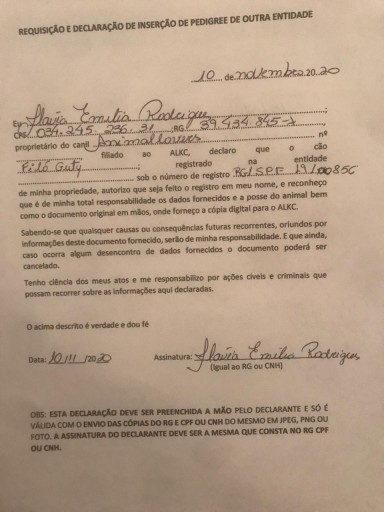 REQUISIÇÃO E DECLARAÇÃO DE INSERÇÃO DE PEDIGREE DE OUTRA ENTIDADE
10 de novembro 20 20
Eu Flavia Emilia Rodrigues
CPF/ 034.245.236-31 ;RG 39.434.845-X ;
proprietário do canil Animallovers nº
filiado ao ALKC, declaro que o cão
Filó Guty ; registrado na entidade
sob o número de registro RG/SPF 19/00856
de minha propriedade, autorizo que seja feito o registro em meu nome, e reconheço
que é de minha total responsabilidade os dados fornecidos e a posse do animal bem
como o documento original em mãos, onde forneço a cópia digital para o ALKC.
Sabendo-se que quaisquer causas ou consequências futuras recorrentes, oriundos por
informações deste documento fornecido, serão de minha responsabilidade. E que ainda,
caso ocorra algum desencontro de dados fornecidos o documento poderá ser
cancelado.
Tenho ciência dos meus atos e me responsabilizo por ações cíveis e criminais que
possam recorrer sobre as informações aqui declaradas.
O acima descrito é verdade e dou fé
Data: 10/11/2020 Assinatura: Flavia Emilia Rodrigues
(Igual ao RG ou CNH)
OBS: ESTA DECLARAÇÃO DEVE SER PREENCHIDA A MÃO PELO DECLARANTE E SÓ É
VÁLIDA COM O ENVIO DAS CÓPIAS DO RG E CPF OU CNH DO MESMO EM JPEG, PNG OU
FOTO. A ASSINATURA DO DECLARANTE DEVE SER A MESMA QUE CONSTA NO RG CPF
OU CNH.